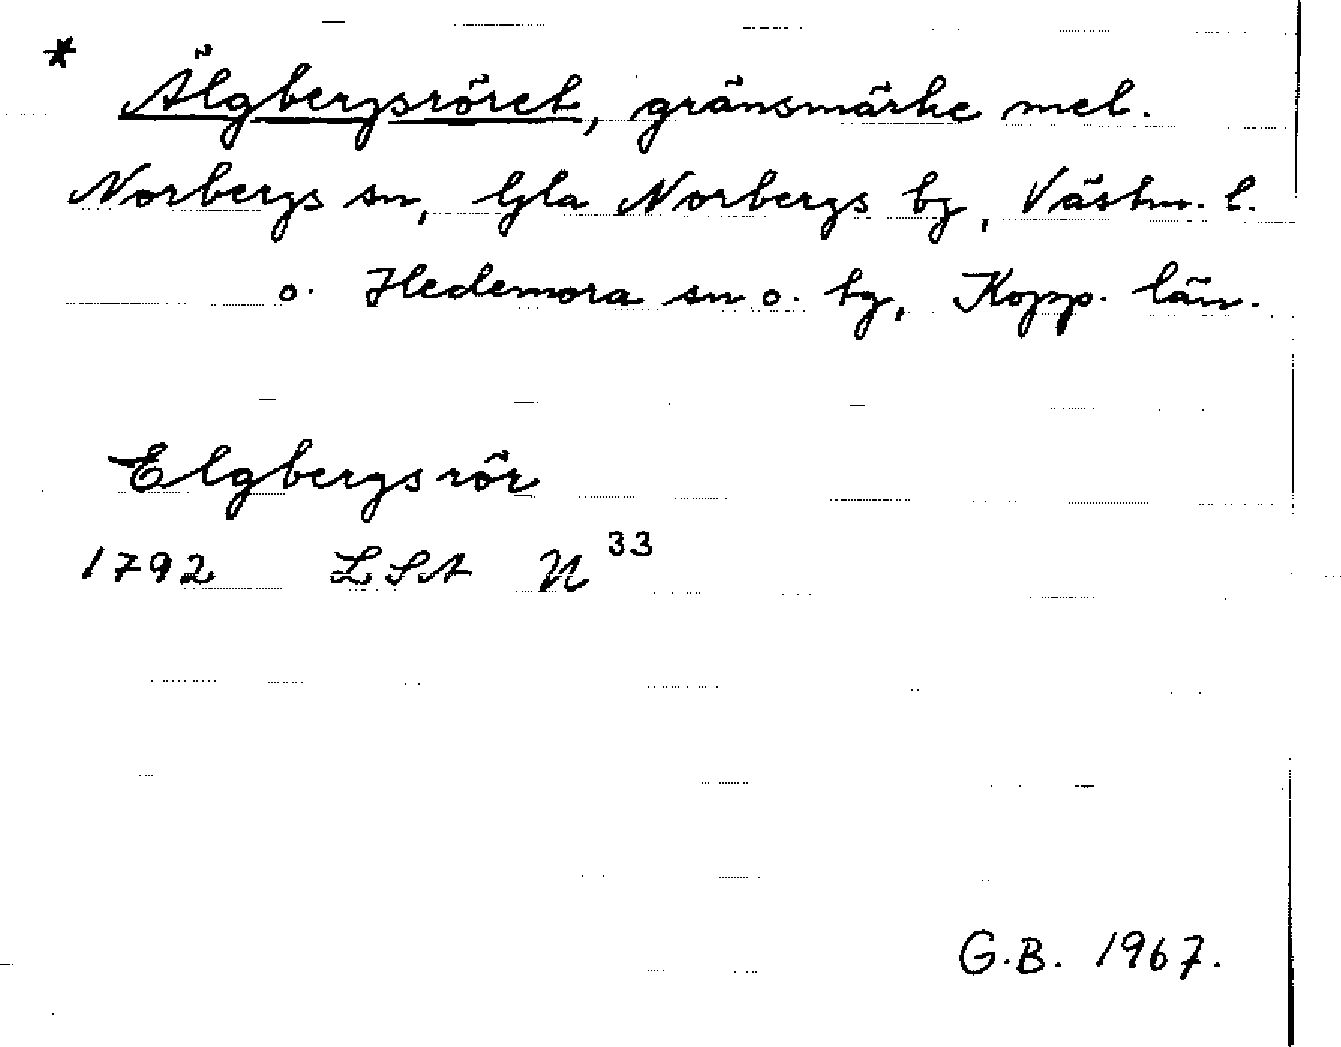 * Älgbergsröret, gränsmärke mel.
Norbergs sn, Gla Norbergs bg, Västm. l.
o. Hedemora sn o. bg, Kopp. län.
Elgbergsrör
1792 LSA N 33
G.B. 1967.